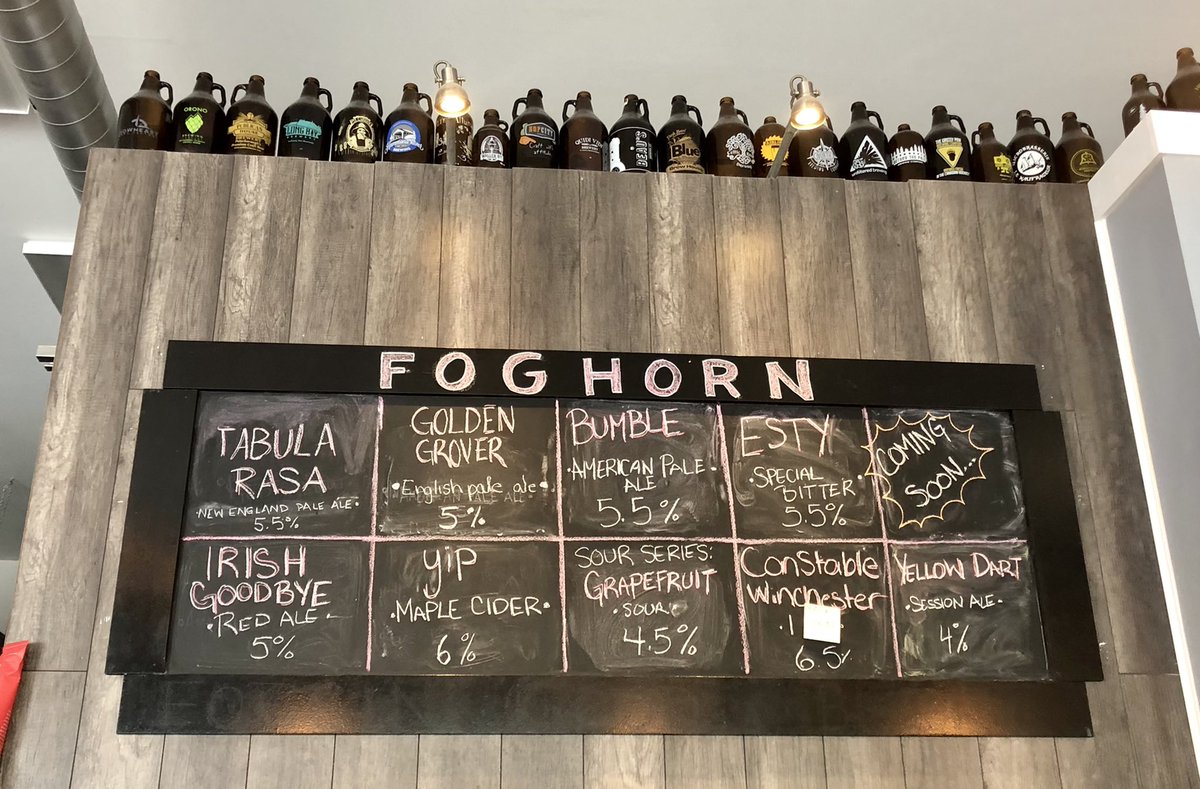 ORONO
HOPCITY
BEAU'S
Blue
FOGHORN
TABULA
RASA
·NEW ENGLAND PALE ALE·
5.5%
GOLDEN
GROVER
·English pale ale·
5%
BUMBLE
·AMERICAN PALE·
ALE
5.5%
ESTY
·SPECIAL
BITTER·
5.5%
COMING
SOON...
IRISH
GOODBYE
·RED ALE·
5%
yip
·MAPLE CIDER·
6%
SOUR SERIES:
GRAPEFRUIT
·SOUR·
4.5%
Constable
Winchester
6.5%
YELLOW DART
·SESSION ALE·
4%